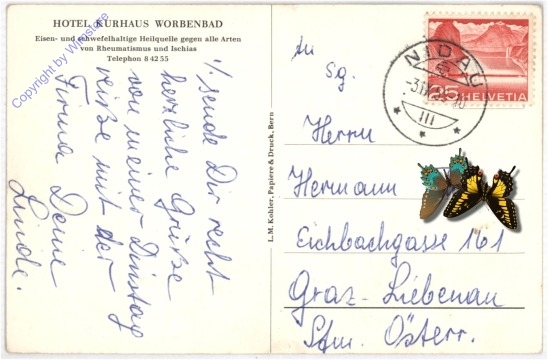 HOTEL KURHAUS WORBENBAD
Eisen- und schwefelhaltige Heilquelle gegen alle Arten
von Rheumatismus und Ischias
Telephon 8 42 55
Copyright by Wimstore
1/ sende Dir recht
herzliche Grüße
von meiner Dinstag
reiße mit der
Firma Deine
Linde.
L. M. Kohler, Papiere & Druck, Bern
NIDAU
25 HELVETIA
An
Sg.
Herrn
Hermann
Eichbachgasse 161
Graz-Liebenau
Stm. Österr.